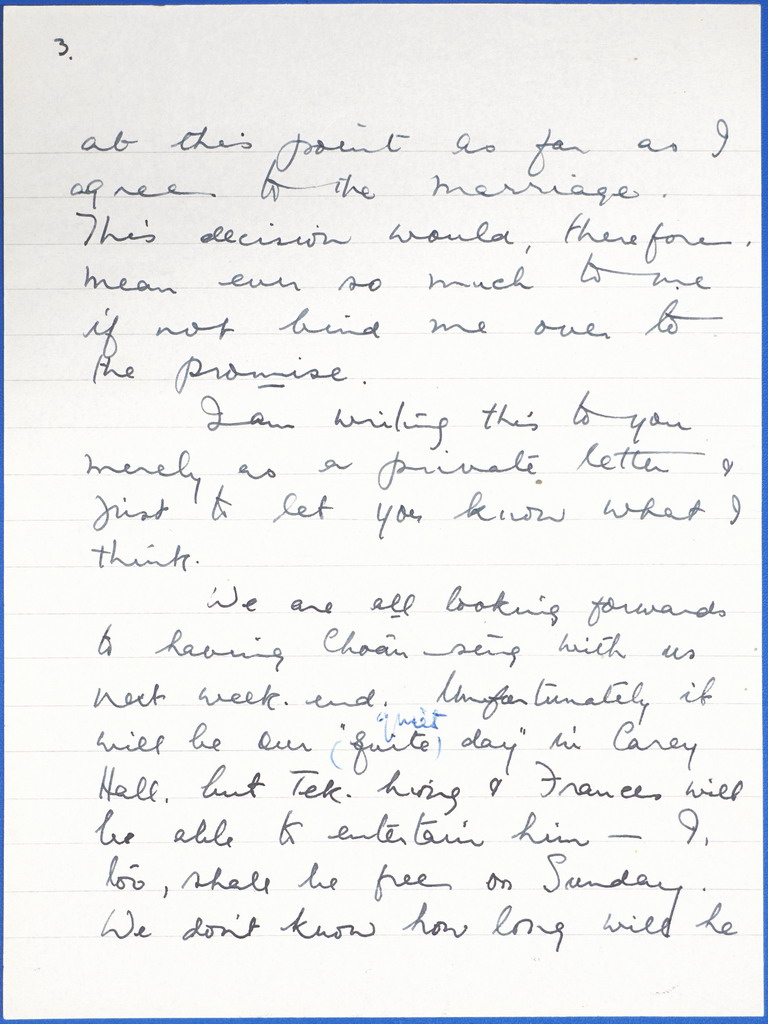 3.
at this point as far as I
agree to the marriage.
This decision would, therefore,
mean ever so much to me
if not bind me over to
the promise.
I am writing this to you
merely as a private letter &
just to let you know what I
think.
We are all looking forwards
to having Choân-seng with us
next week-end. Unfortunately it
quiet
will be our "(quite) day" in Carey
Hall, but Tek-hing & Frances will
be able to entertain him — I,
too, shall be free on Sunday.
We don't know how long will he